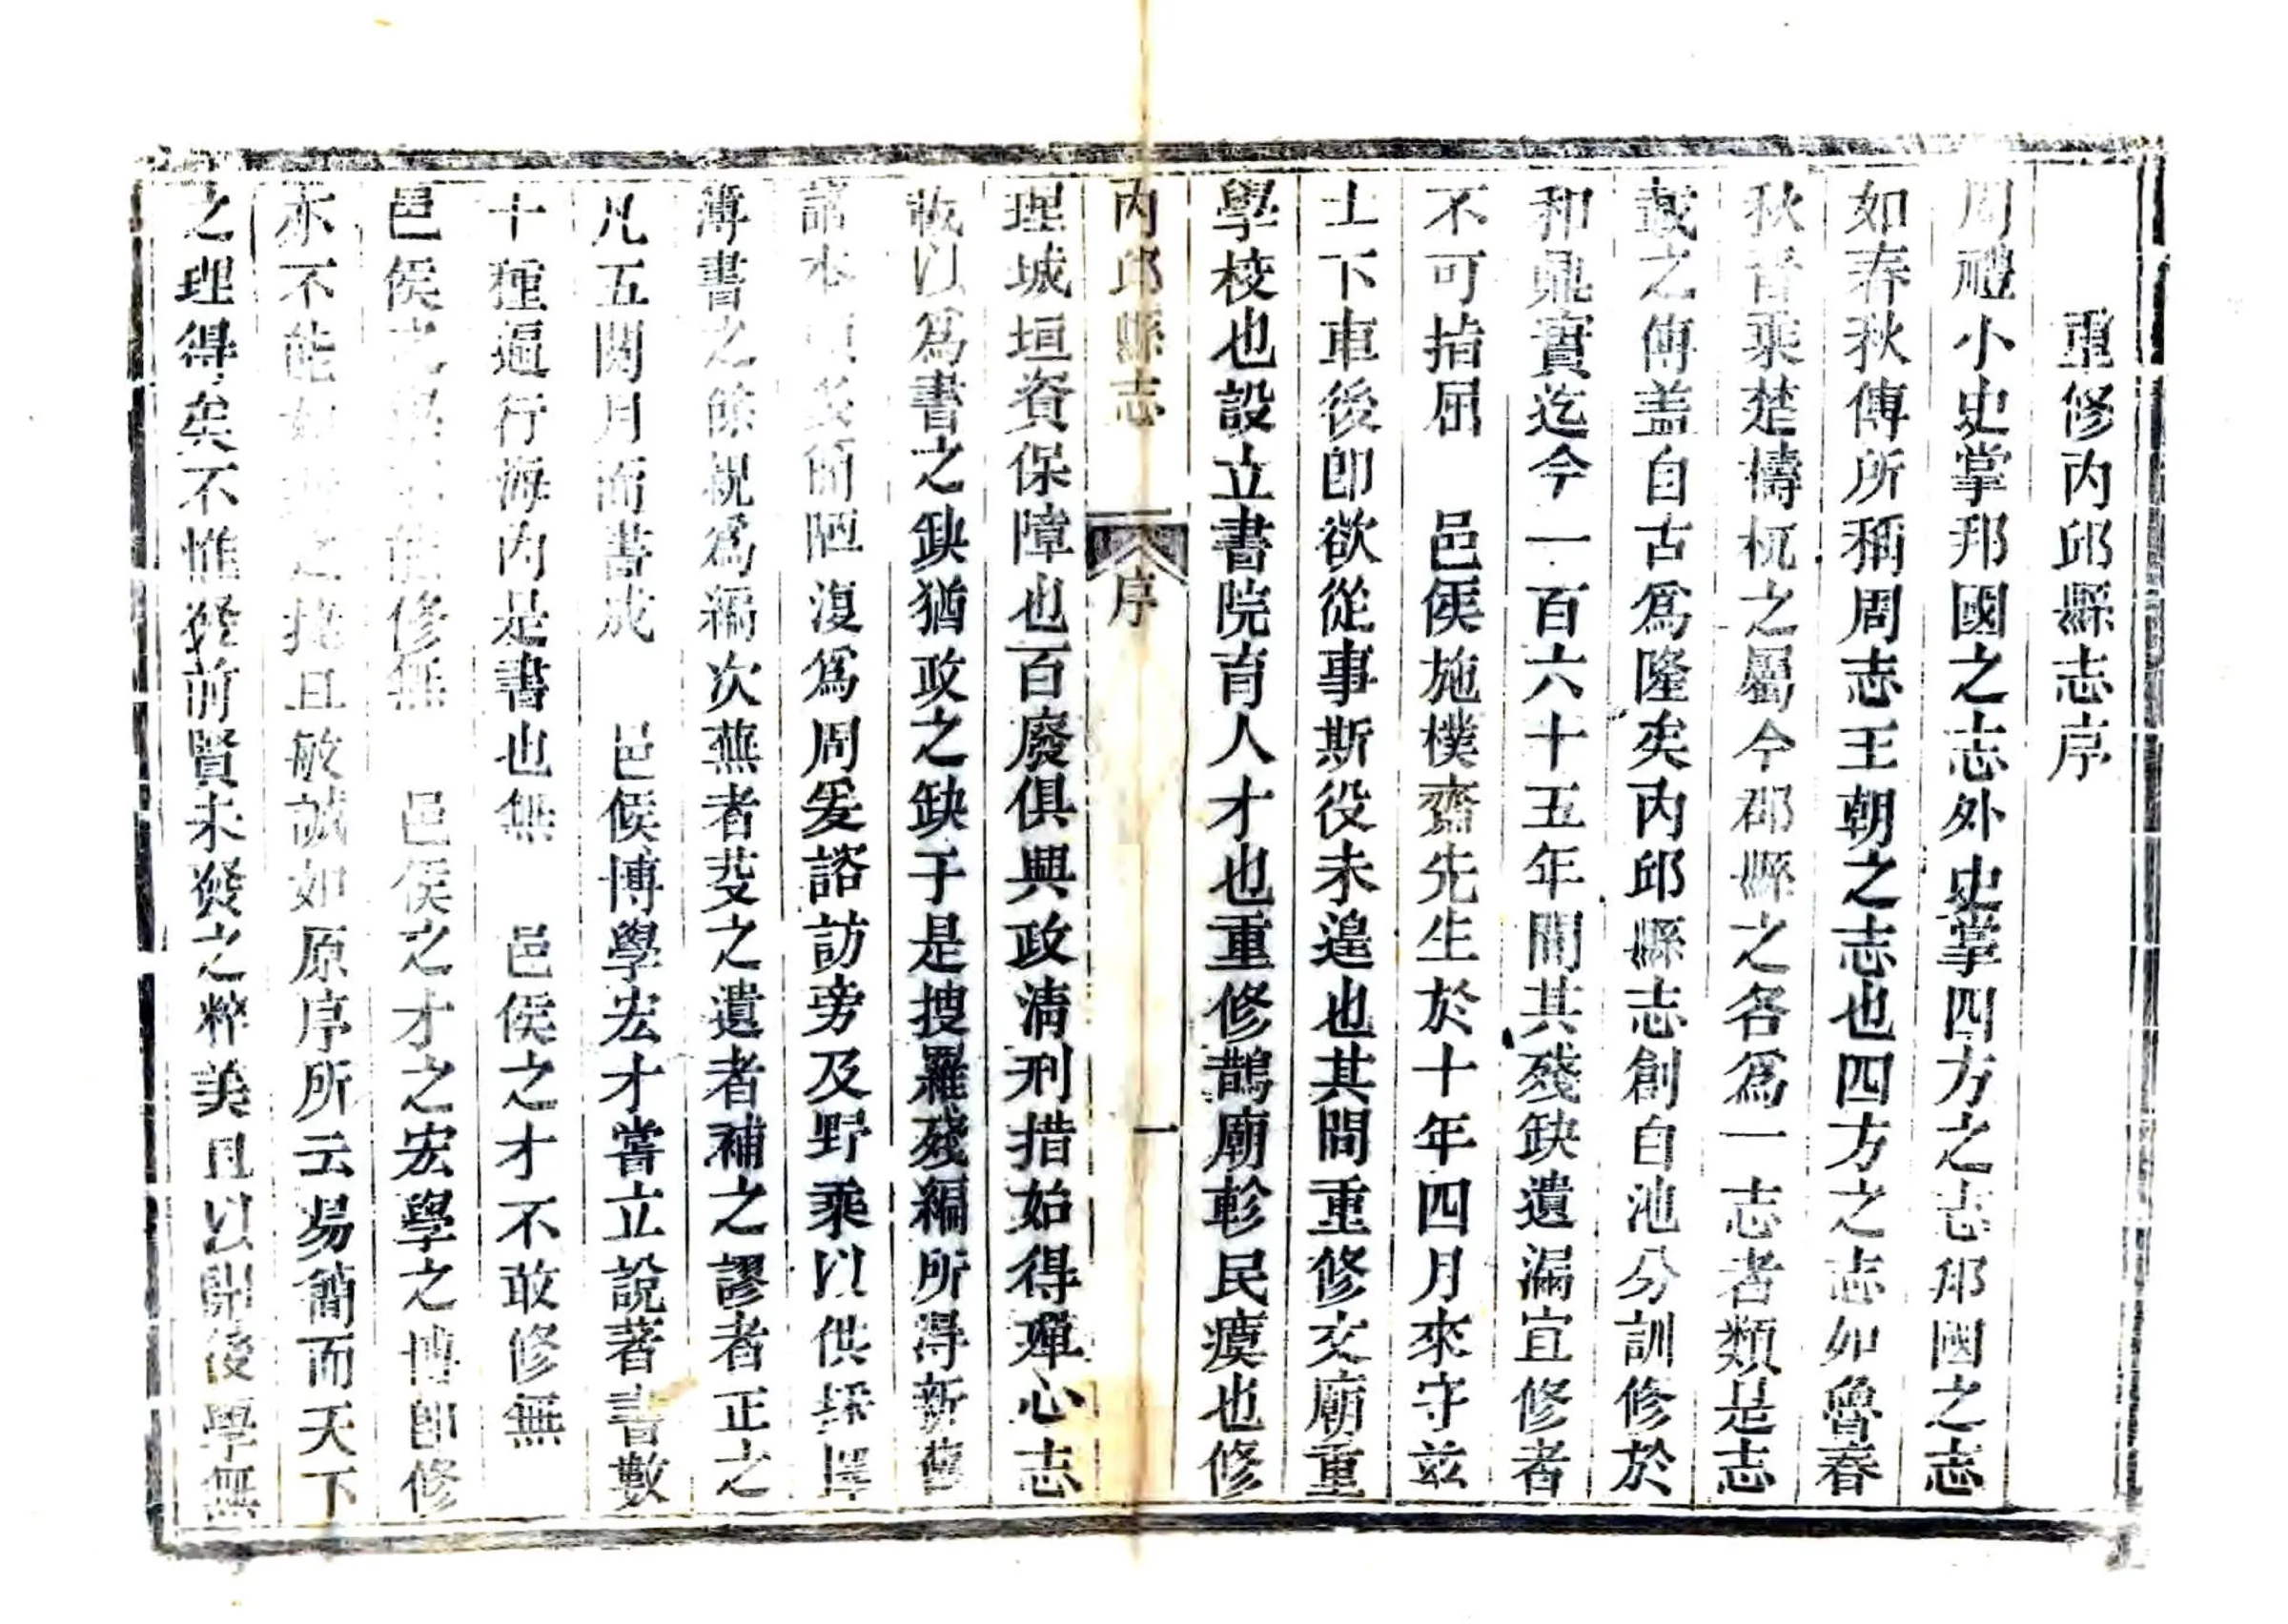 重修内邱縣志序
周禮小史掌邦國之志外史掌四方之志邦國之志
如春秋傳所稱周志王朝之志也四方之志如魯春
秋晉乘楚檮杌之屬今郡縣之各爲一志者類是志
乘之傳盖自古爲隆矣内邱縣志創自池分訓修於
和鼎實迄今一百六十五年間其殘缺遺漏宜修者
不可指屈　邑侯施樸齋先生於十年四月來守兹
土下車後卽欲從事斯役未遑也其間重修文廟重
學校也設立書院育人才也重修鵲廟軫民瘼也修
内邱縣志　序　一
理城垣資保障也百廢俱興政清刑措始得殫心志
乘以爲書之缺猶政之缺于是搜羅殘編所得新舊
諸本簡陋復爲周爰諮訪旁及野乘以供採擇
薄書之餘親爲編次蕪者芟之遺者補之謬者正之
凡五閱月而書成　邑侯博學宏才嘗立說著書數
十種遍行海内是書也無　邑侯之才不敢修無
邑侯之學不能修無　邑侯之才之宏學之博卽修
亦不能如是之捷且敏誠如原序所云易簡而天下
之理得矣不惟發前賢未發之粹美且以開後學無